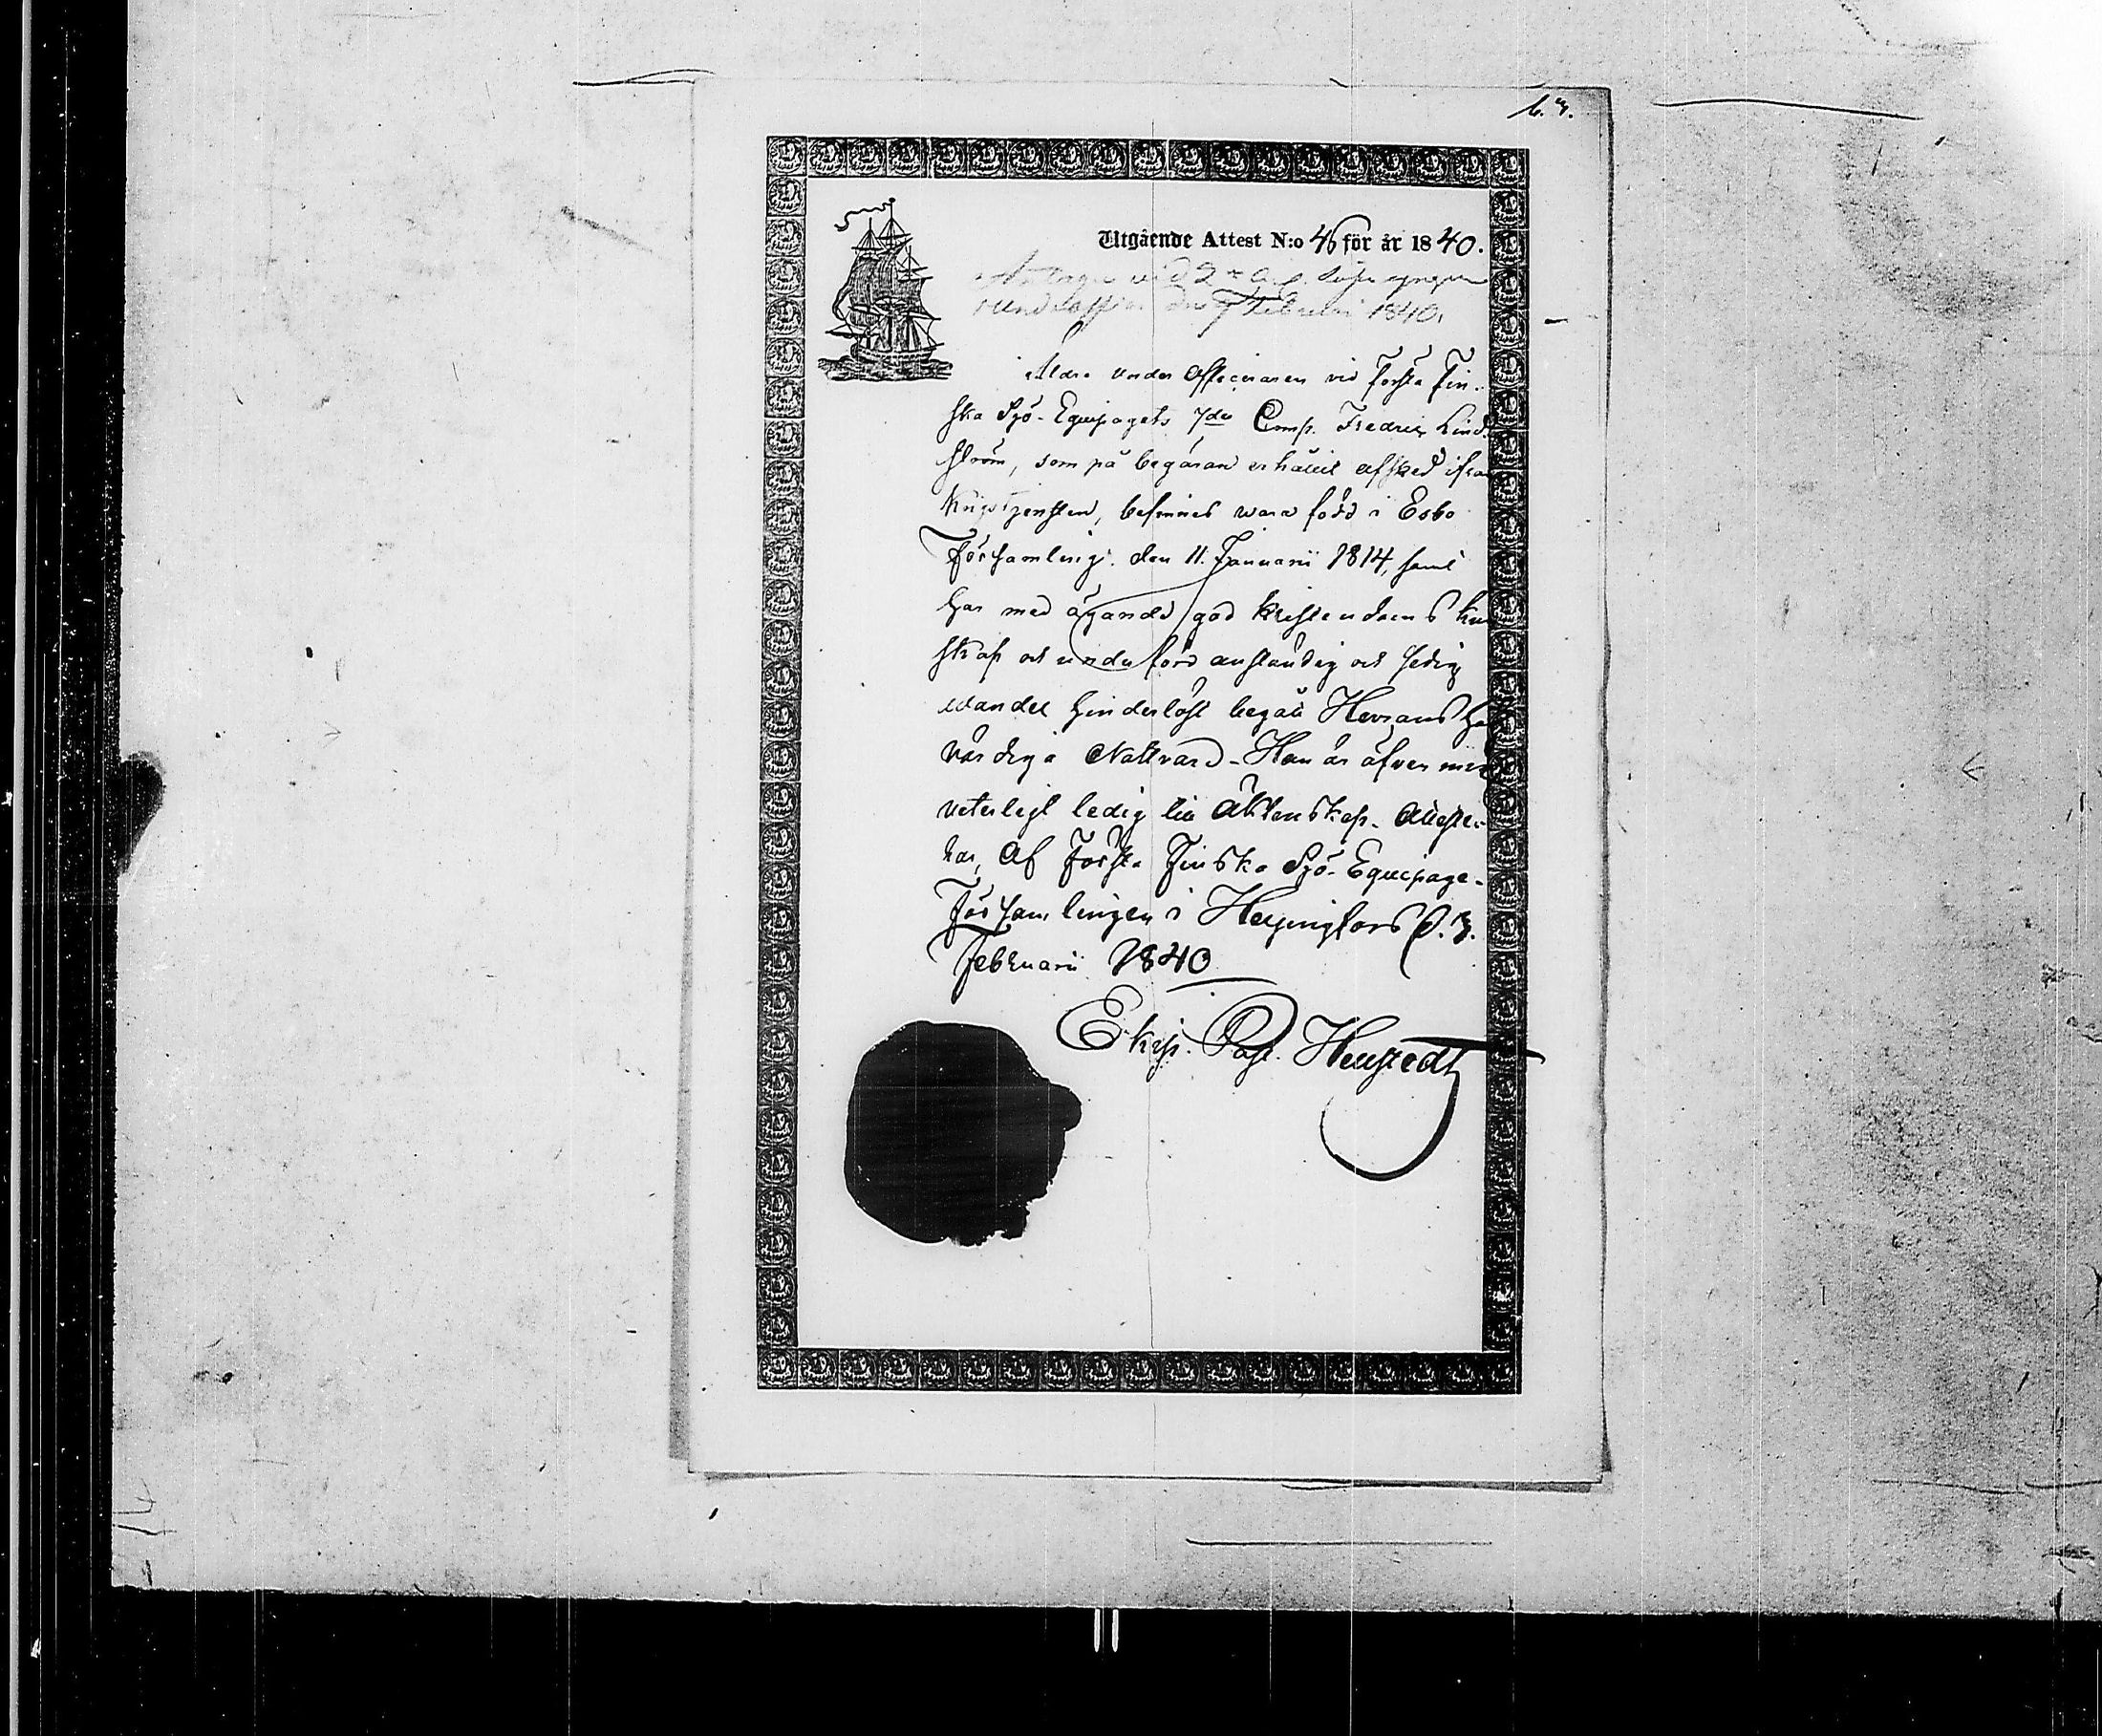 b. 3.
Utgående Attest N:o 46 för år 1840.
Februarii 1840.
Äldre Under Officeraren vid Första Fin-
ska Sjö-Equipagets 7de Comp. Fredric Lind-
ström, som på begäran erhållit afsked ifrån
Krigstjensten, befinnes wara född i Esbo
Församling den 11. Januarii 1814, samt
har med ägande god Kristendoms kun
skap och under förd anständig och sedig
wandel hinderlöst begått Herrans Hög
värdiga Nattvard - Han är äfven mig
veterligt ledig till Äktenskap. Atteste-
rar, Af Första Finska Sjö-Equipage-
Församlingen i Helsingfors d. 3.
Februarii 1840
Ekip. Past. Hellstedt